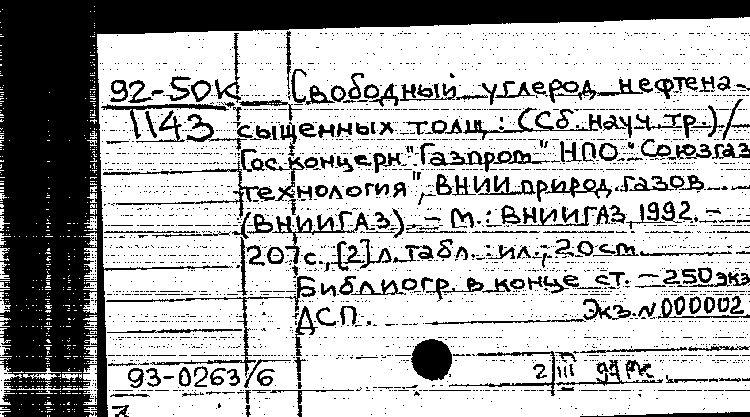 92-50К Свободный углерод нефтена-
1143 сыщенных толщ : (Сб. науч. тр.) /
Гос. концерн "Газпром" НПО "Союзгаз
технология", ВНИИ природ. газов
(ВНИИГАЗ). - М. : ВНИИГАЗ, 1992. -
207 с., [2] л. табл. : ил.; 20 см.
Библиогр. в конце ст. - 250 экз
ДСП. Экз. № 000002
93-0263/6 2/III